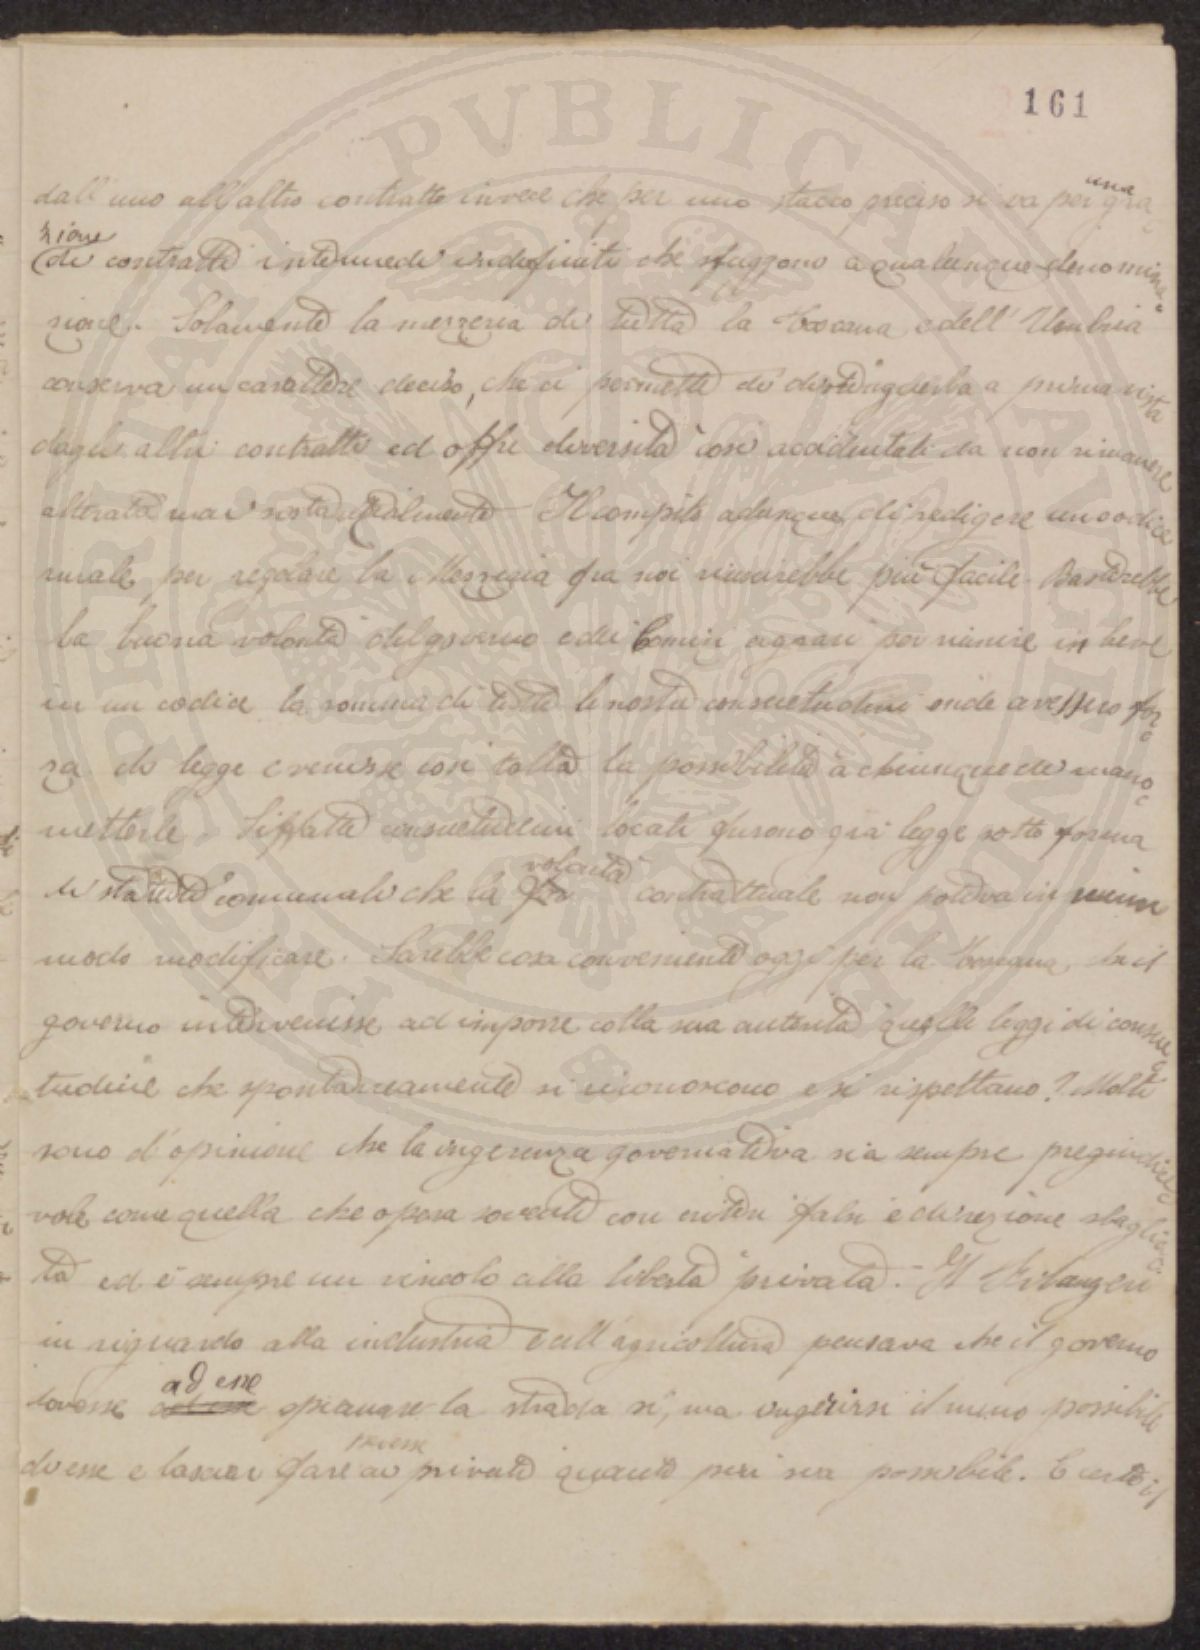 161
dall'uno all'altro contratto invece che per uno stacco preciso si va per una gra-
zione di contratti intermedi indefiniti che sfuggono a qualunque denomina-
zione. Solamente la mezzeria di tutta la Toscana e dell'Umbria
conserva un carattere deciso, che ci permette di distinguerla a prima vista
dagli altri contratti ed offre diversità così accidentali da non rimanere
alterata mai sostanzialmente. Il compito adunque di redigere un codice
rurale per regolare la Mezzeria fra noi riuscirebbe più facile. Basterebbe
la buona volontà del governo e dei Comizi agrari per riunire in breve
in un codice la somma di tutte le nostre consuetudini onde avessero for-
za di legge e venisse così tolta la possibilità a chiunque di mano-
metterle. Siffatte consuetudini locali furono già legge sotto forma
di statuti comunali che la volontà contrattuale non poteva in niun
modo modificare. Sarebbe cosa conveniente oggi per la Toscana, che il
governo intervenisse ad imporre colla sua autorità quelle leggi di consue-
tudine che spontaneamente si riconoscono e si rispettano? Molti
sono d'opinione che la ingerenza governativa sia sempre pregiudice-
vole come quella che opera sovente con criteri falsi e direzione sbaglia-
ta ed è sempre un vincolo alla libertà privata. Il
in riguardo alla industria e all'agricoltura pensava che il governo
dovesse ad esse spianare la strada sì, ma ingerirsi il meno possibile
di esse e lasciar fare invece ai privati quanto più sia possibile. E certo il